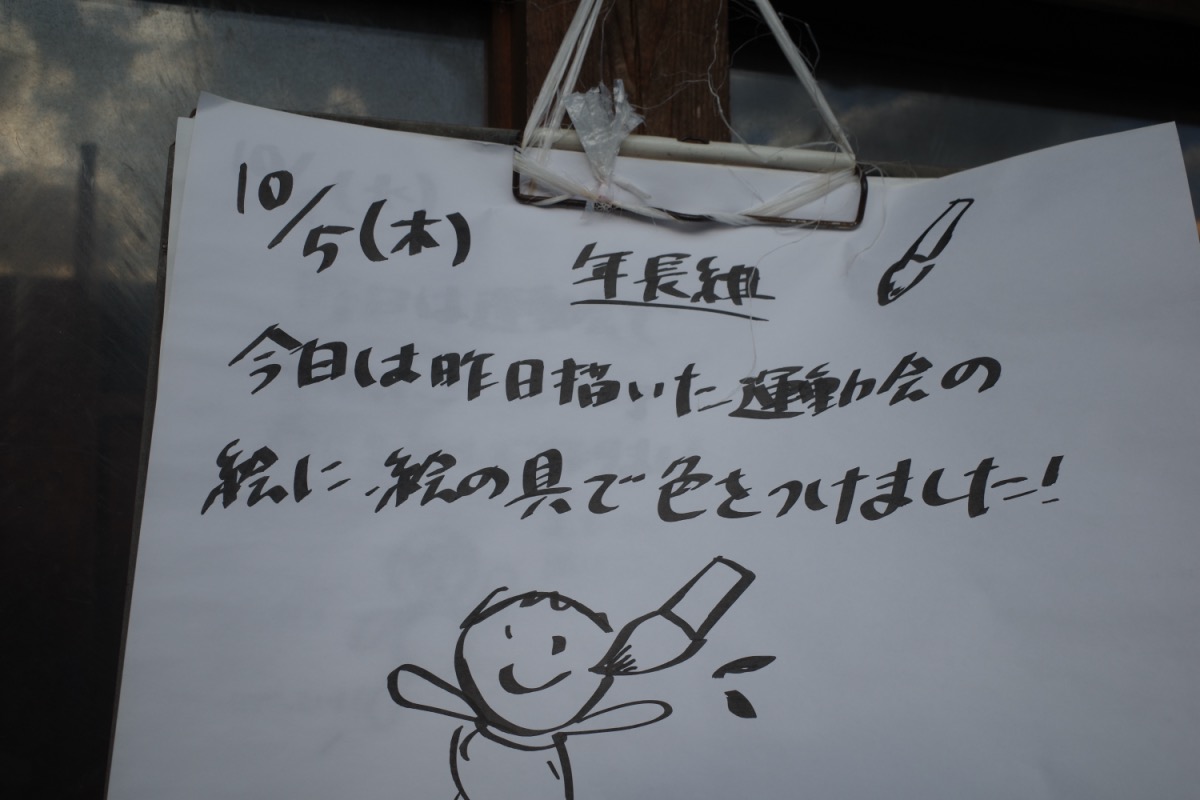 10/5(木)
年長組
今日は昨日描いた運動会の
絵に、絵の具で色をつけました!